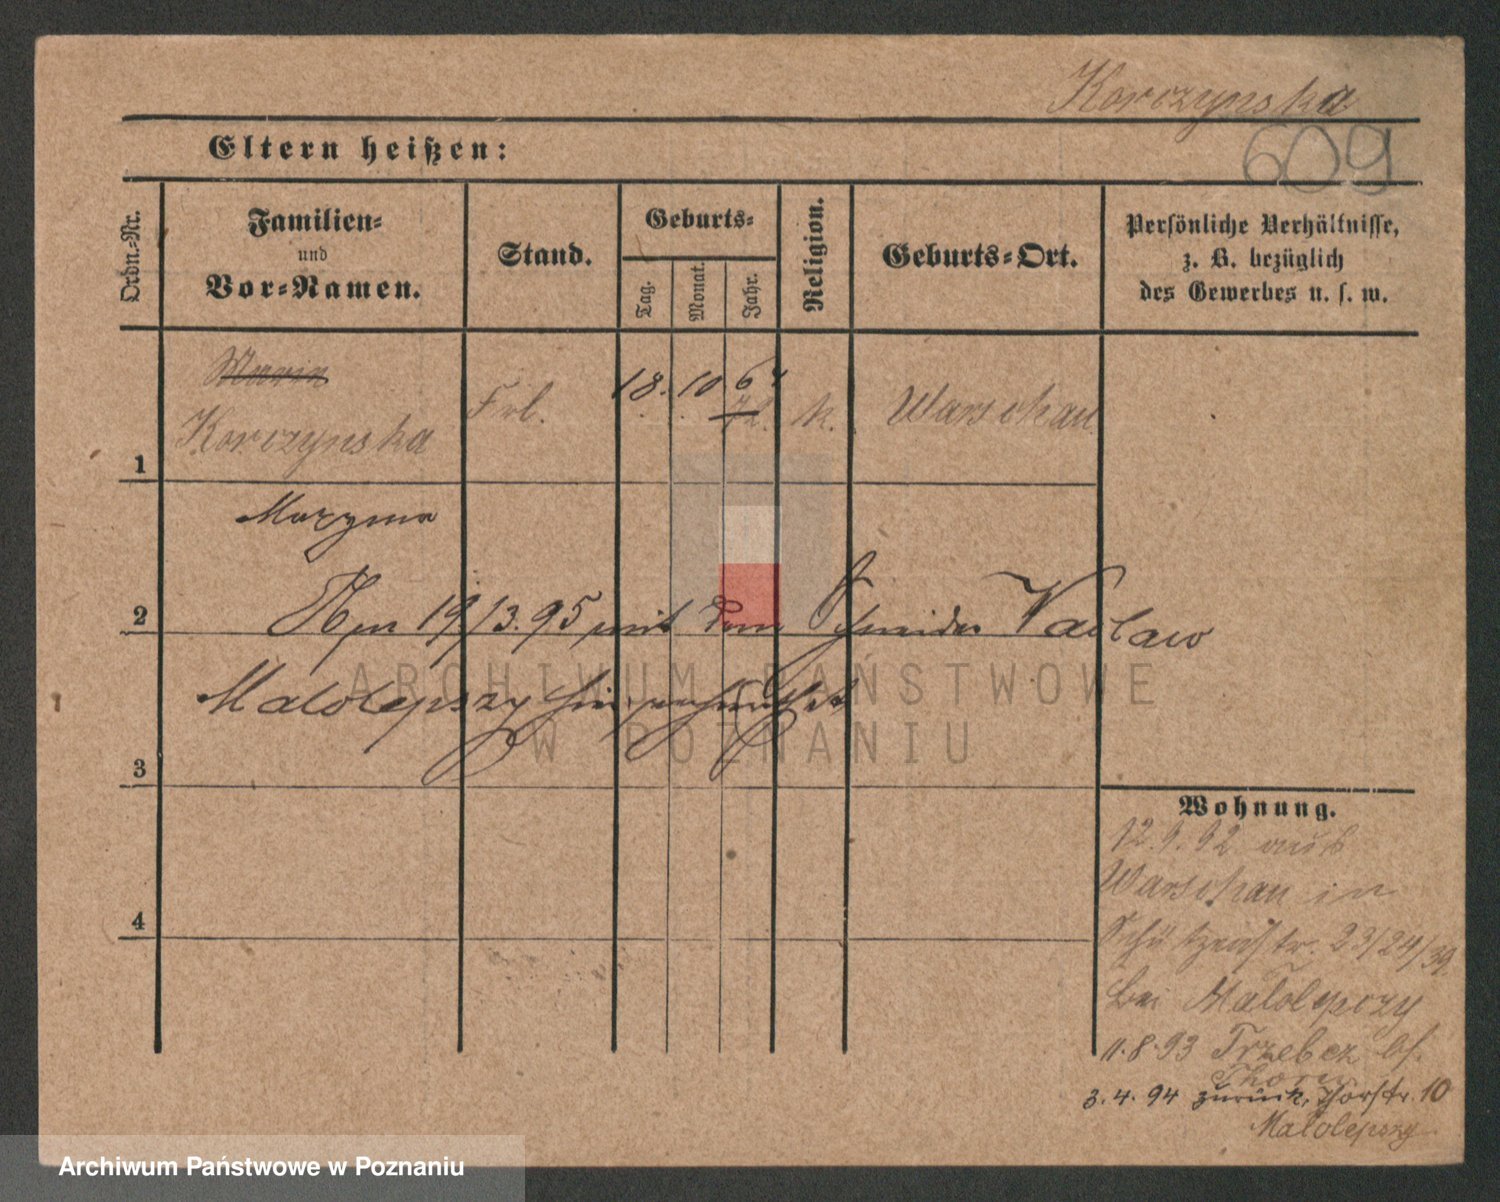 Korczynska
609
Eltern heißen:
Ordn.-Nr.
Familien-
und
Vor-Namen.
Stand.
Geburts-
Tag.
Monat.
Jahr.
Religion.
Geburts-Ort.
Persönliche Verhältnisse,
z. B. bezüglich
des Gewerbes u. s. w.
1
Maria
Korczynska
Frl.
18. 10 64
72.
k.
Warschau
Maryma
2
Am 19/3.95 mit dem Schneider Vaclaw
Malolepszy hier verheirathet
3
4
Wohnung.
12.9.92 aus
Warschau in
Schützenstr. 23/24/39.
bei Malolepszy
11.8.93 Trzebcz bei
Thorn
3.4.94 zurück, Thorstr. 10
Malolepszy
ARCHIWUM PAŃSTWOWE
W POZNANIU
Archiwum Państwowe w Poznaniu